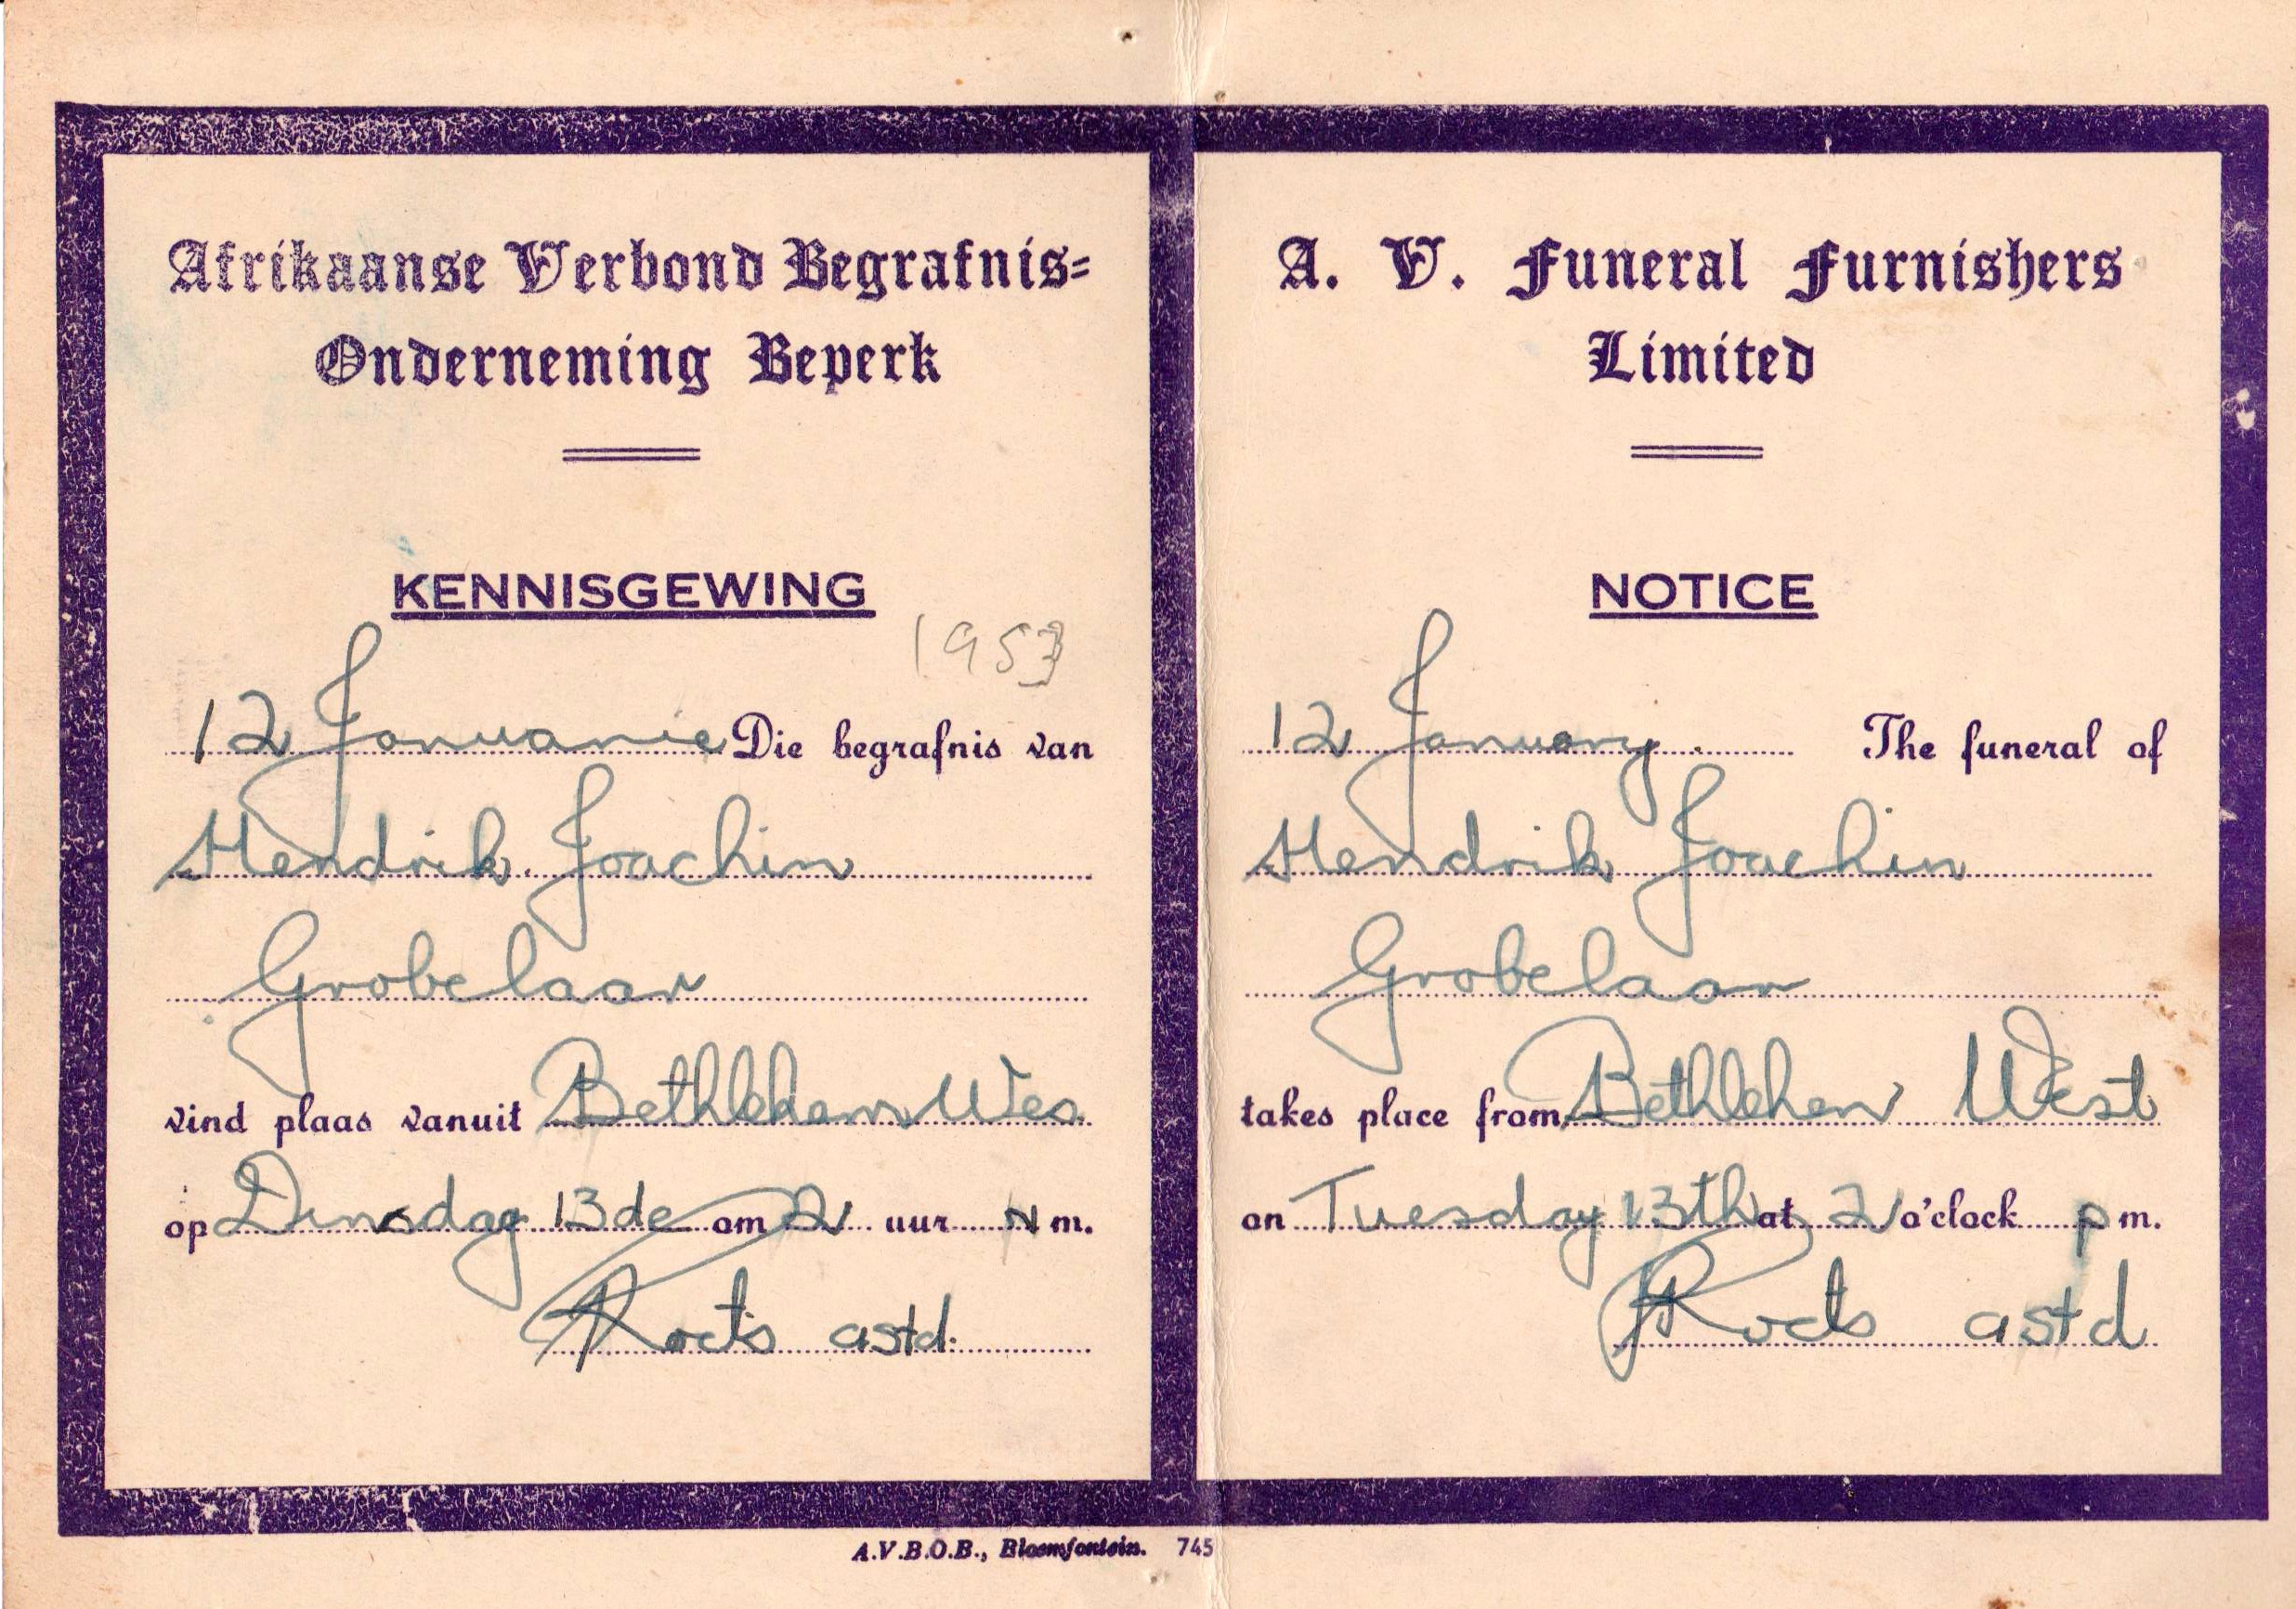 Afrikaanse Verbond Begrafnis-
Onderneming Beperk
KENNISGEWING
1953
12 Januarie Die begrafnis van
Hendrik Joachim
Grobelaar
vind plaas vanuit Bethlehem Wes
op Dinsdag 13de om 2 uur N m.
Koets astd.
A. V. Funeral Furnishers
Limited
NOTICE
12 January. The funeral of
Hendrik Joachim
Grobelaar
takes place from Bethlehem West
on Tuesday 13th at 2 o'clock p m.
astd
A.V.B.O.B., Bloemfontein. 745